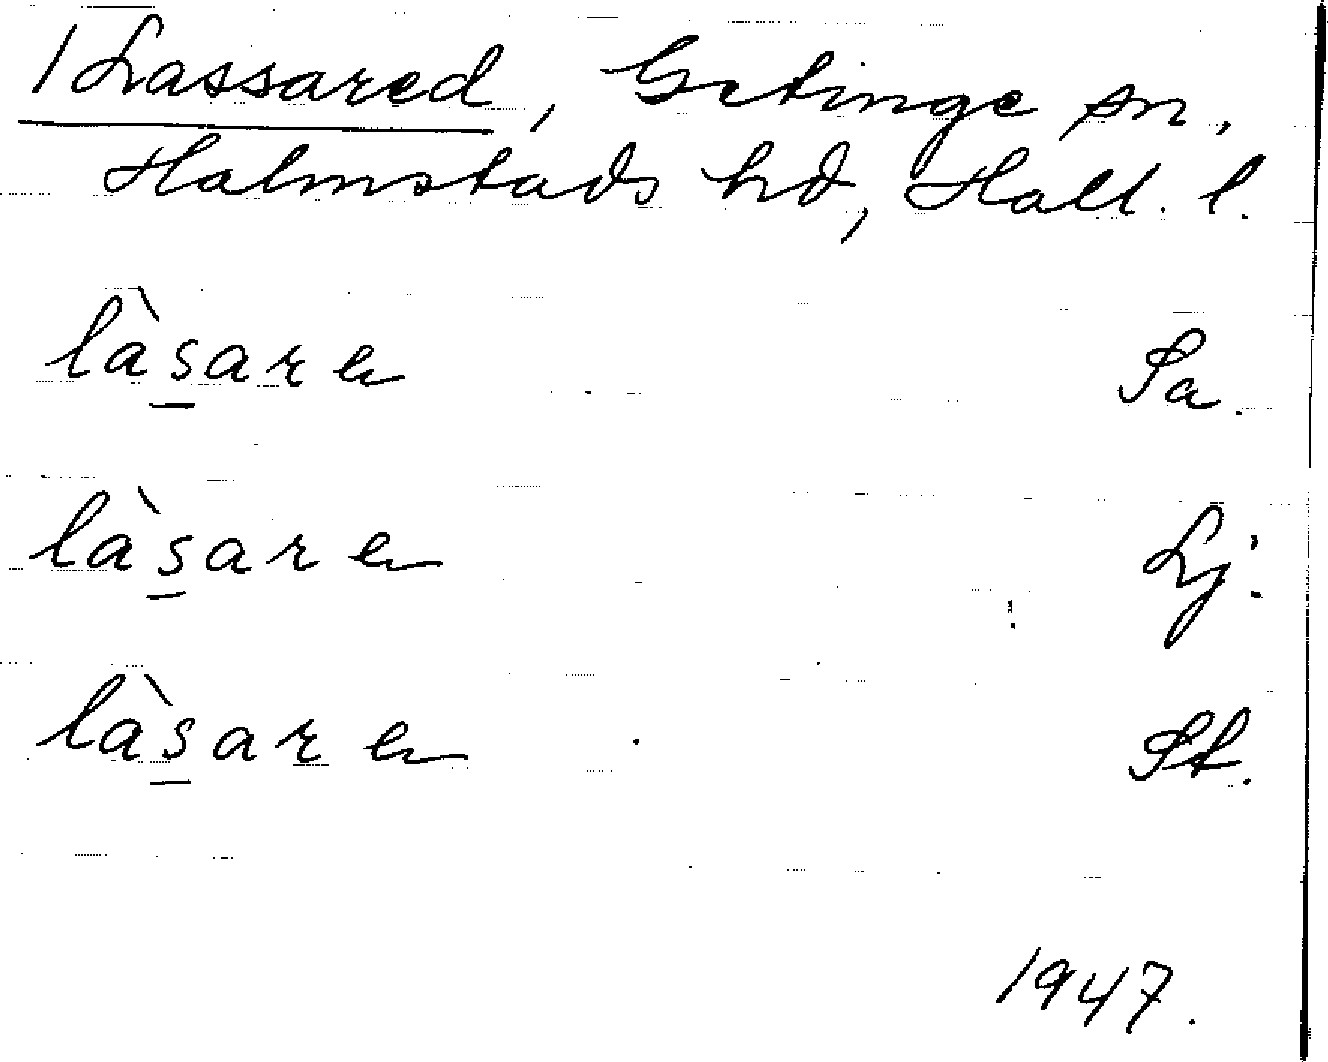 /Lassared, Getinge sn,
Halmstads hd, Hall. l.
làs̲are Sa.
làs̲are Lj.
làs̲are St.
1947.